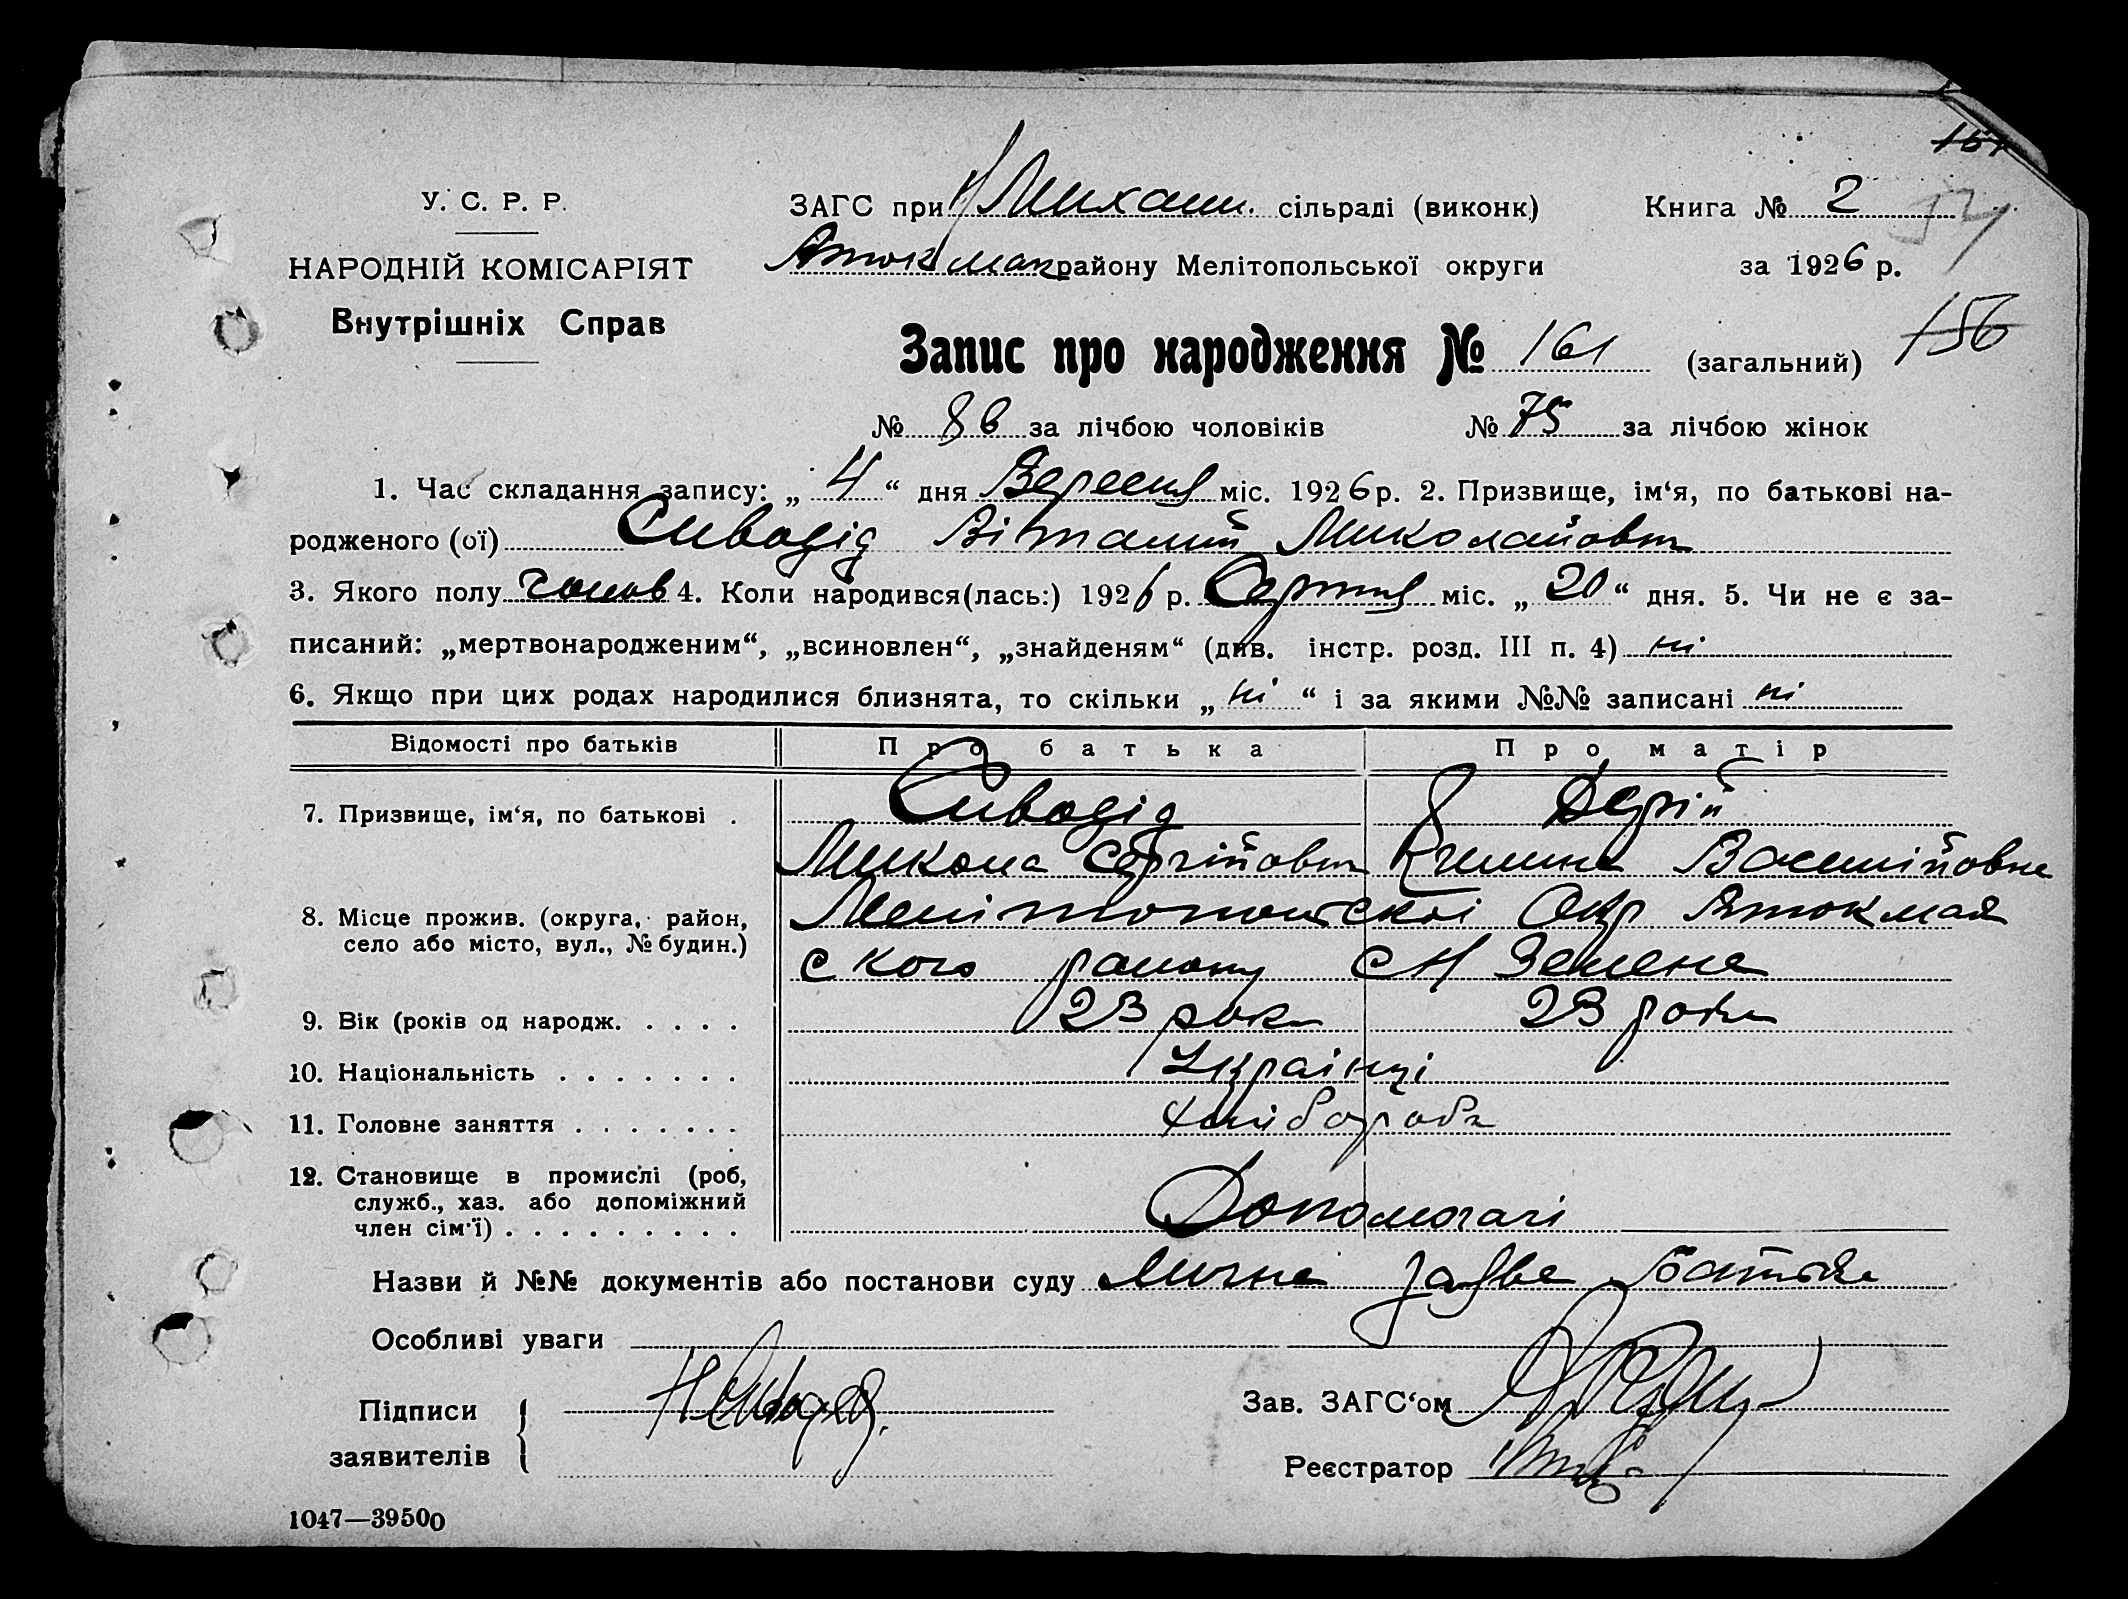 У. С. Р. Р.
НАРОДНІЙ КОМІСАРІЯТ
Внутрішніх Справ
ЗАГС при Н Михайл. сільраді (виконк)
Книга № 2
54
Я токмак району Мелітопольської округи
за 1926 р.
Запис про народження № 161 (загальний)
156
№ 86 за лічбою чоловіків № 75 за лічбою жінок
1. Час складання запису: „ 4 “ дня Вересня міс. 1926 р. 2. Призвище, ім‘я, по батькові на-
родженого (ої) Сиводід Віталий Миколайович
3. Якого полу чолов 4. Коли народився(лась:) 1926 р. Серпня міс. „ 20 “ дня. 5. Чи не є за-
писаний: „мертвонародженим“, „всиновлен“, „знайденям“ (див. інстр. розд. III п. 4) ні
6. Якщо при цих родах народилися близнята, то скільки „ ні “ і за якими №№ записані ні
Відомості про батьків Про батька Про матір
7. Призвище, ім‘я, по батькові . Сиводід Дерій
Микола Сергійович Васілійовна
8. Місце прожив. (округа, район, Мелітопольської Окр Я токмая
село або місто, вул., № будин.) ского району с Н Зелене
9. Вік (років од народж. . . . . 23 роки 23 роки
10. Національність . . . . . . . Українці
11. Головне заняття . . . . . . . Хлібороби
12. Становище в промислі (роб,
служб., хаз. або допоміжний
член сім‘ї) . . . . . . . . . Допомогачі
Назви й №№ документів або постанови суду Лична заява батька
Особливі уваги
Підписи
заявителів
Зав. ЗАГС‘ом
Реєстратор
1047—39500